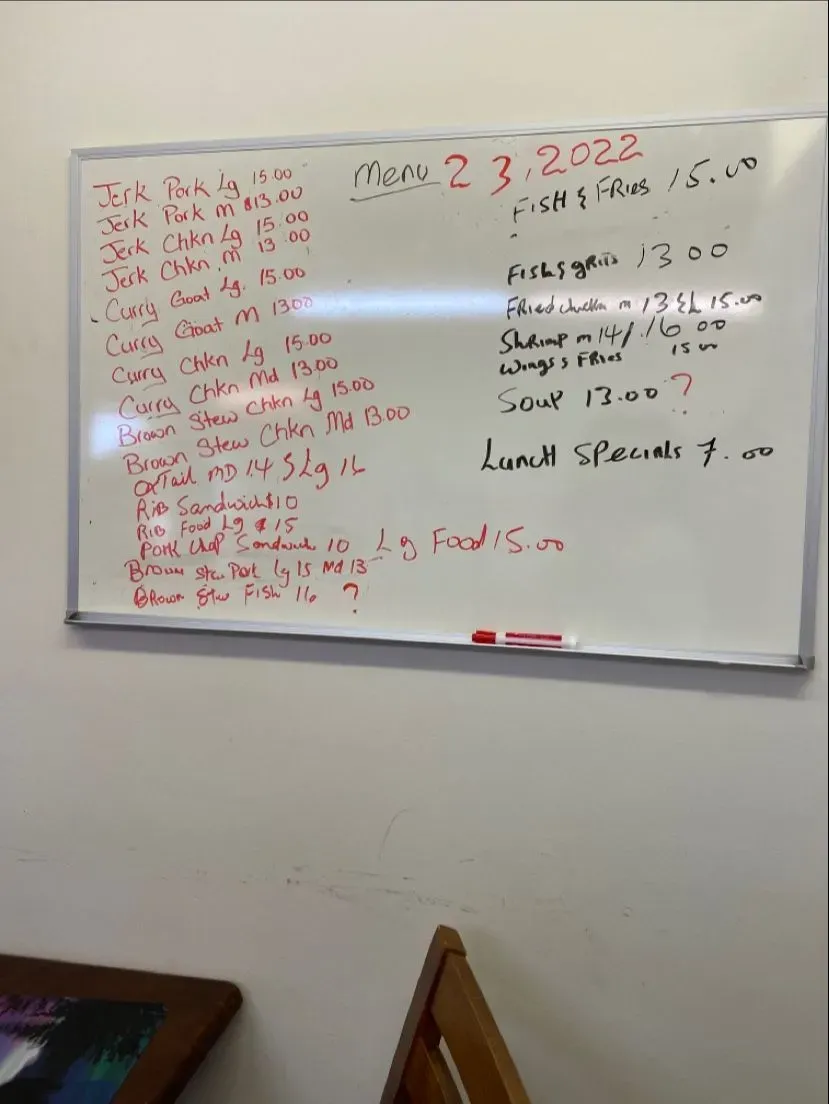 Menu 2 3, 2022
Jerk Pork Lg 15.00
Jerk Pork m $13.00
Jerk Chkn Lg 15.00
Jerk Chkn m 13.00
Curry Goat Lg. 15.00
Curry Goat m 1300
Curry Chkn Lg 15.00
Curry Chkn Md 13.00
Brown Stew Chkn Lg 15.00
Brown Stew Chkn Md 13.00
OxTail MD 14 $ Lg 16
RiB Sandwich $10
RiB Food Lg $15
Pork Chop Sandwich 10 Lg Food 15.00
Brown Stew Pork Lg 15 Md 13
Brown Stew Fish 16 ?
FISH & FRies 15.00
Fish & gRits 13 00
FRied chicken m 13 & L 15.00
ShRimp m 14/ 16 00
wings & FRies 15 00
Soup 13.00 ?
LuncH Specials 7.00